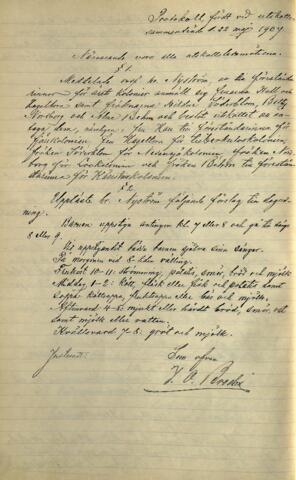 Protokoll, fördt vid utskotts-
sammanträde d. 22 maj 1907.
Närvarande voro alla utskottsledamöterna.
§ 1.
Meddelade ordf. hr Nyström, av de föreståndar-
innor för året kolonier anmält sig fruarna Hall och
Hagellin samt fröknarna Hilda Söderblom, Betty
Norborg och Alma Behm och beslöt utskottet att en-
gagera dem, nämligen: Fru Hall till föreståndarinna för
kolonien, Fru Hagellin för
fröken Söderblom för kolonien, fröken Nor-
borg för kolonien och fröken Behm till förestån-
darinna för kolonien.
§ 2.
Upplästes hr. Nyström följande förslag till dagord-
ning.
Barnen uppstiga antingen kl. 7 eller 8 och gå till sängs
8 eller 9.
Vid uppstigandet bädda barnen själva sina sängar.
På morgonen vid 8-tiden välling.
Frukost 10-11: strömming, potatis, smör, bröd och mjölk
Middag 1-2: kött, fläsk eller fisk och potatis samt
soppa: köttsoppa, fruktsoppa eller bär och mjölk.
Aftonvard 4-5: mjukt eller hårdt bröd, smör, ost
samt mjölk eller vatten.
Kvällsvard 7-8: gröt och mjölk.
Justerat:
Som ofvan